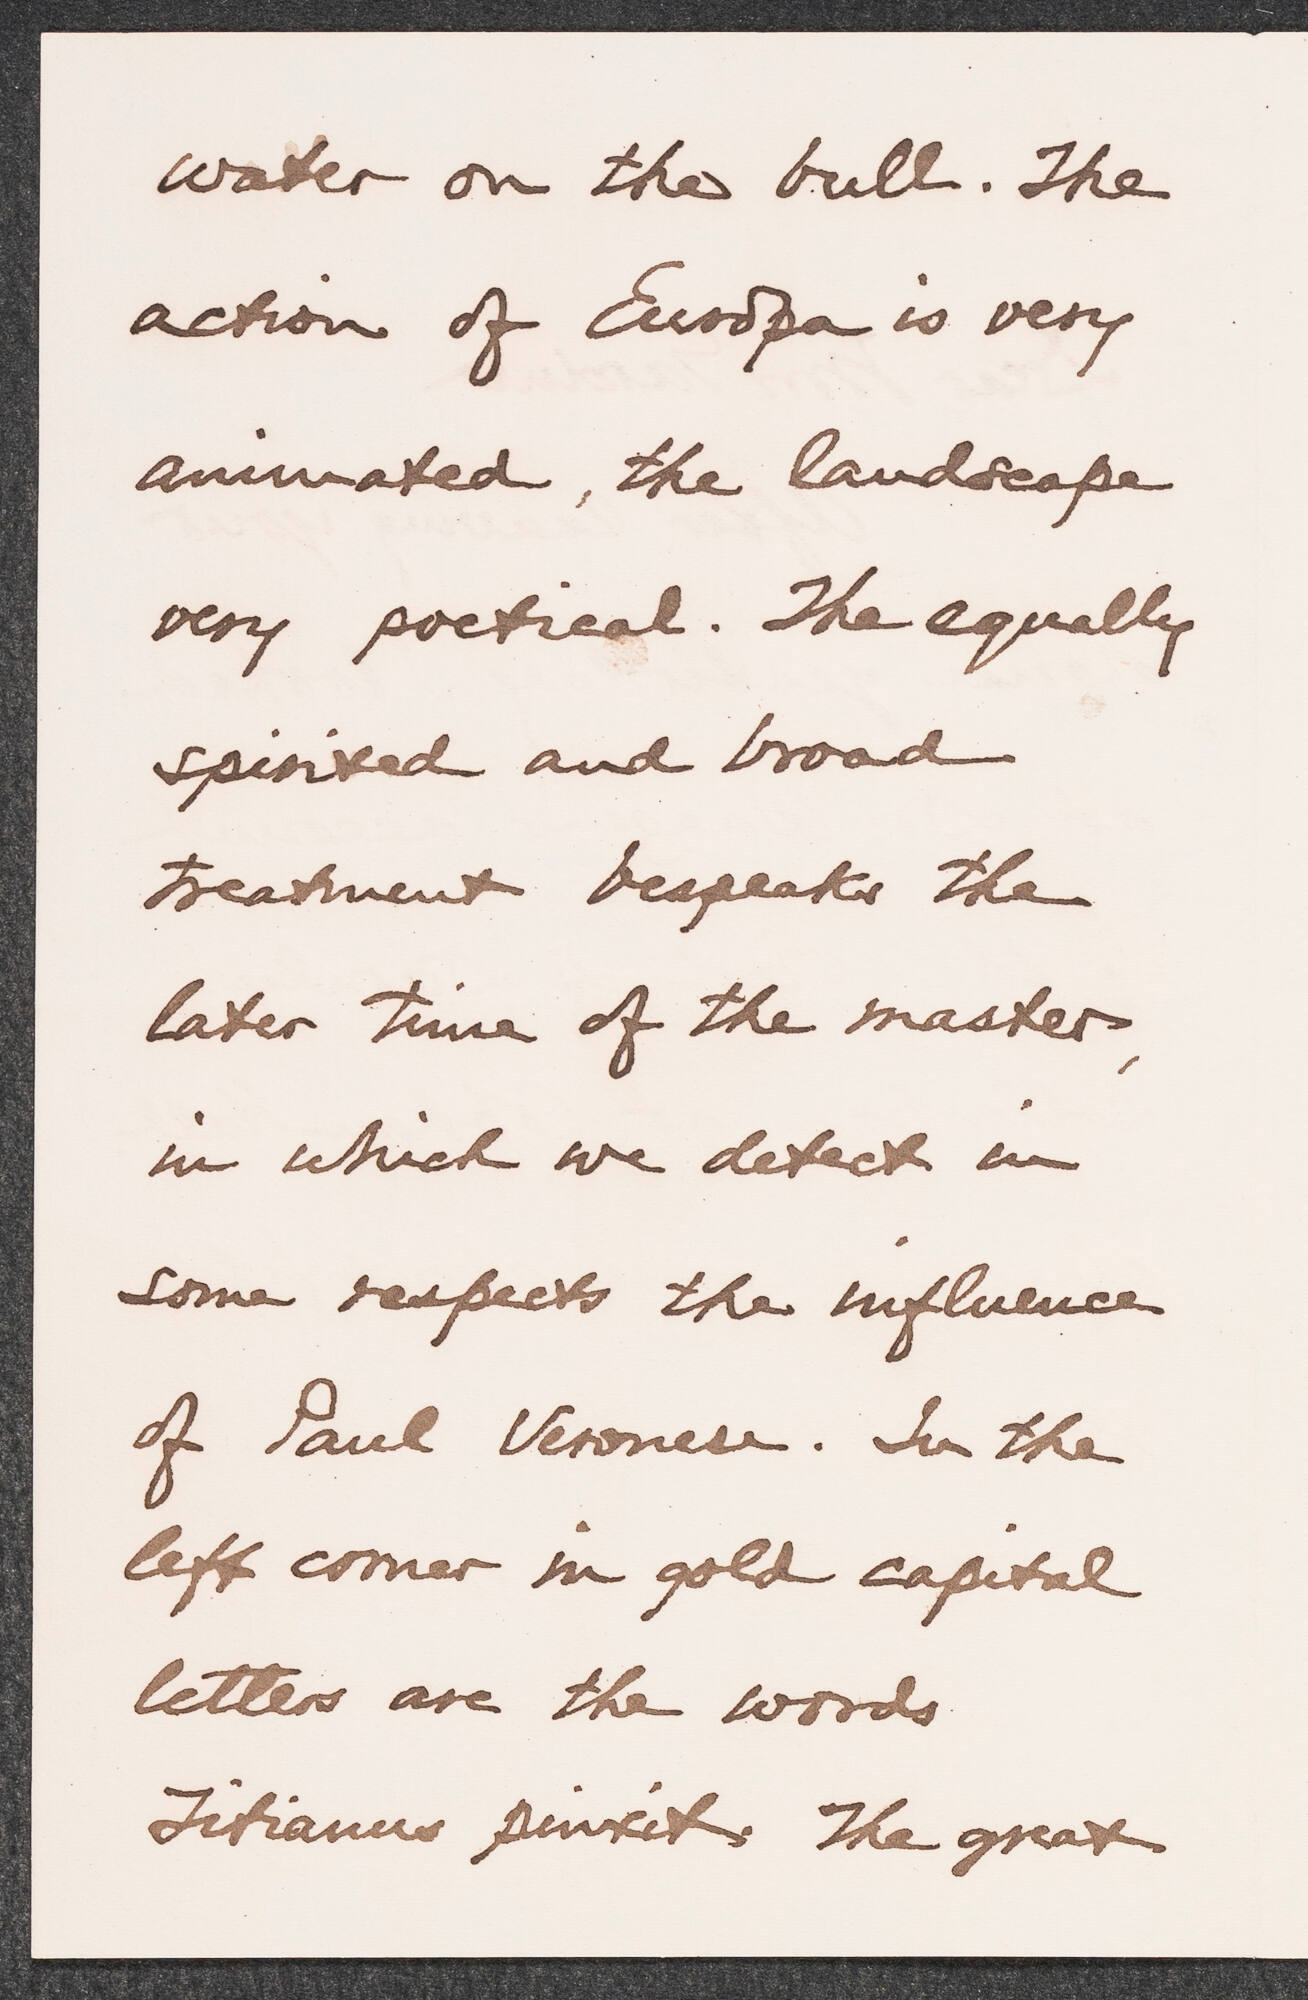 water on the bull. The
action of Europa is very
animated, the landscape
very poetical. The equally
spirited and broad
treatment bespeaks the
later time of the master,
in which we detect in
some respects the influence
of Paul Veronese. In the
left corner in gold capital
letters are the words
Titianus pinxit. The great